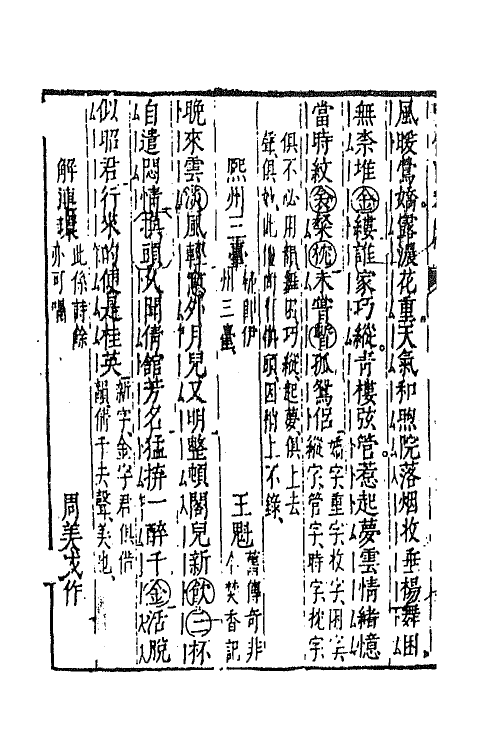 風暖鶯嬌露濃花重天氣和煦院落烟收垂楊舞困
無柰堆金縷誰家巧縱青樓弦管惹起夢雲情緒憶
當時紋衾粲枕未嘗暫孤鴛侶
嬌字重字收字困字
縱字管字時字枕字
俱不必用韻舞困巧縱起夢俱上去
聲俱妙此俱頭因梢上不錄
熙州三臺
卽伊
州三臺
王魁
舊傳奇非
今焚香記
晚來雲淡風輕窓外月兒又明整頓閣兒新飲三杯
自遣悶情換頭久聞倩館芳名猛拚一醉千金活脫
似昭君行來的便是桂英
新字金字君俱借
韻倩千去聲美也
解連環
此係詩餘
亦可唱
周美成作